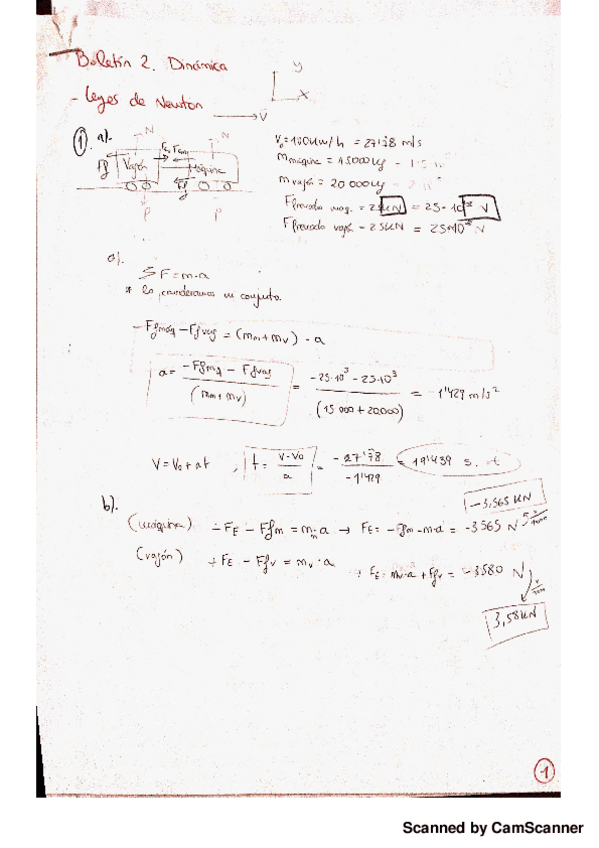 Boletín 2. Dinámica
y
x
- Leyes de Newton
V
① a).
N
N
Vagón
Máquina
P
P
V₀ = 100 km/h = 27'78 m/s
m máquina = 15000 kg
m vagón = 20 000 kg
F frenado maq. = 25 kN = 25·10³ N
F frenado vagón = 25 kN = 25·10³ N
a).
ΣF = m·a
* lo consideramos un conjunto.
-Ffmáq - Ffvag = (mm + mv) · a
a = -Ffmq - Ffvag / (mm + mv) = -25·10³ - 25·10³ / (15 000 + 20000) = -1'429 m/s²
V = V₀ + at , t = V - V₀ / a = -27'78 / -1'429 = 19'439 s.
b).
-3,565 kN
(máquina) -FE - Ffm = mm·a → FE = -Ffm - m·a = -3565 N
(vagón) +FE - Ffv = mv · a
+ FE = mv·a + Ffv = -3580 N
3,58 kN
1
Scanned by CamScanner